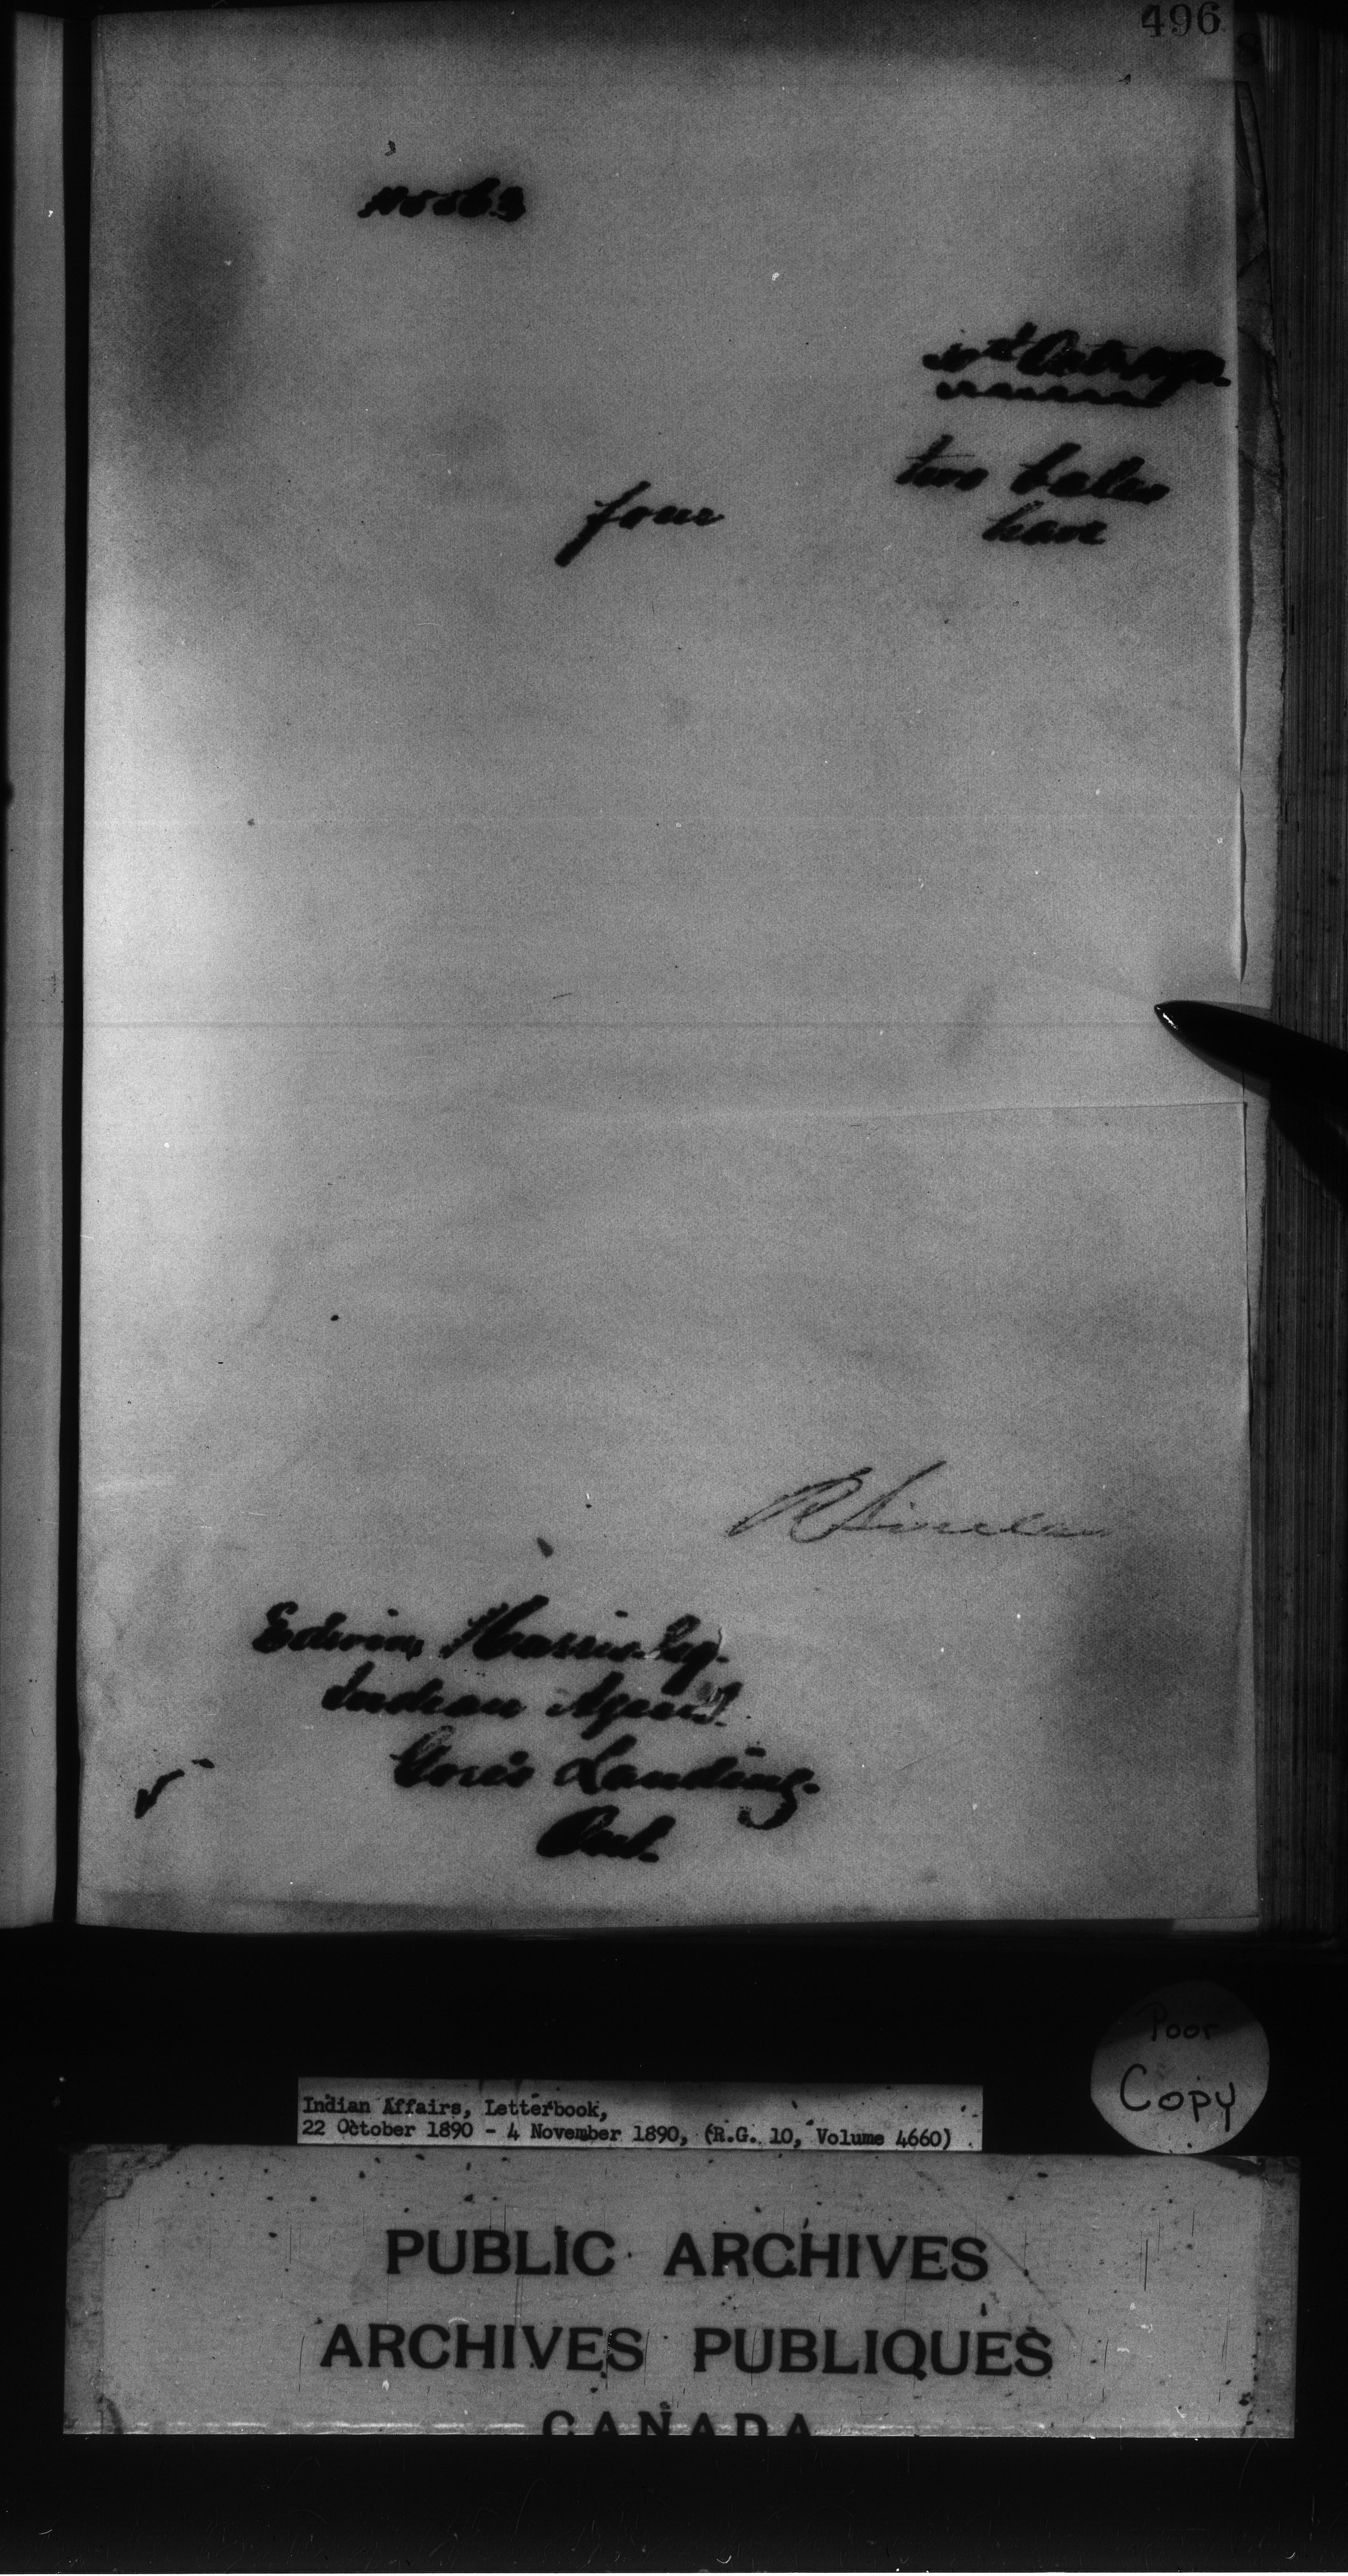 496
two bales
four
have
R Sinclair
Edwin Harris Esq.
Indian Agent.
Gore's Landing.
Ont.
Poor
Copy
Indian Affairs, Letterbook,
22 October 1890 - 4 November 1890, (R.G. 10, Volume 4660)
PUBLIC ARCHIVES
ARCHIVES PUBLIQUES
CANADA